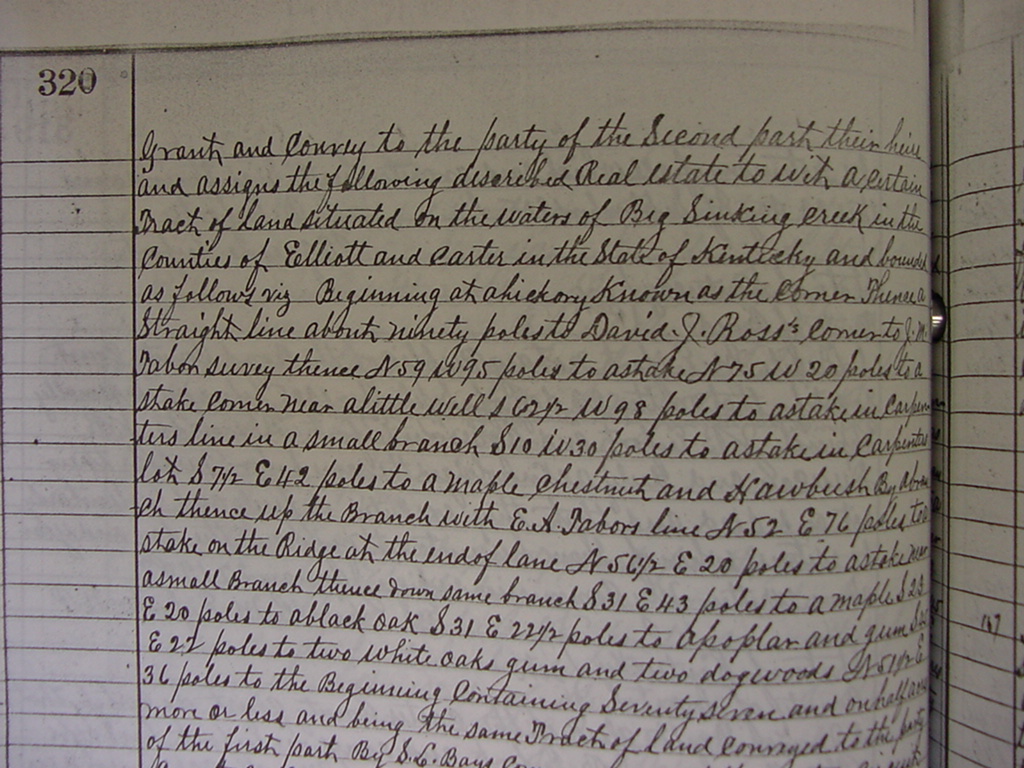 320
Grant and Convey to the party of the Second part their heirs
and assigns the following described Real estate to wit a certain
Tract of land situated on the waters of Big Sinking Creek in the
Counties of Elliott and Carter in the State of Kentucky and bounded
as follows viz Beginning at a hickory Known as the Corner Thence a
Straight line about ninety poles to David J. Ross's Corner to J. M
Tabor survey thence N 59 W 95 poles to a stake N 75 W 20 poles to a
stake Corner near a little well S 62 1/2 W 98 poles to a stake in Carpen
ters line in a small branch S 10 W 30 poles to a stake in Carpenters
lot S 7 1/2 E 42 poles to a maple Chestnut and Hawbush By a bran
ch thence up the Branch with E. A. Tabors line N 52 E 76 poles to a
stake on the Ridge at the end of lane N 56 1/2 E 20 poles to a stake near
a small Branch thence down same branch S 31 E 43 poles to a maple S 23
E 20 poles to a black oak S 31 E 22 1/2 poles to a poplar and gum
E 22 poles to two white oaks gum and two dogwoods N 51 1/2 E
36 poles to the Beginning Containing Seventy seven and on half acres
more or less and being the same Tract of land conveyed to the party
of the first part By S. L. Bays